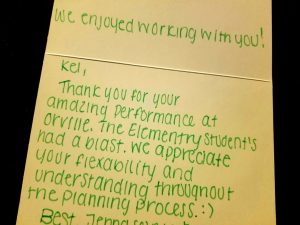 We enjoyed working with you!
Kel,
Thank you for your
amazing performance at
Orville. The Elementry Student's
had a blast. We appreciate
your flexability and
understanding throughout
the planning process. :)
Best,